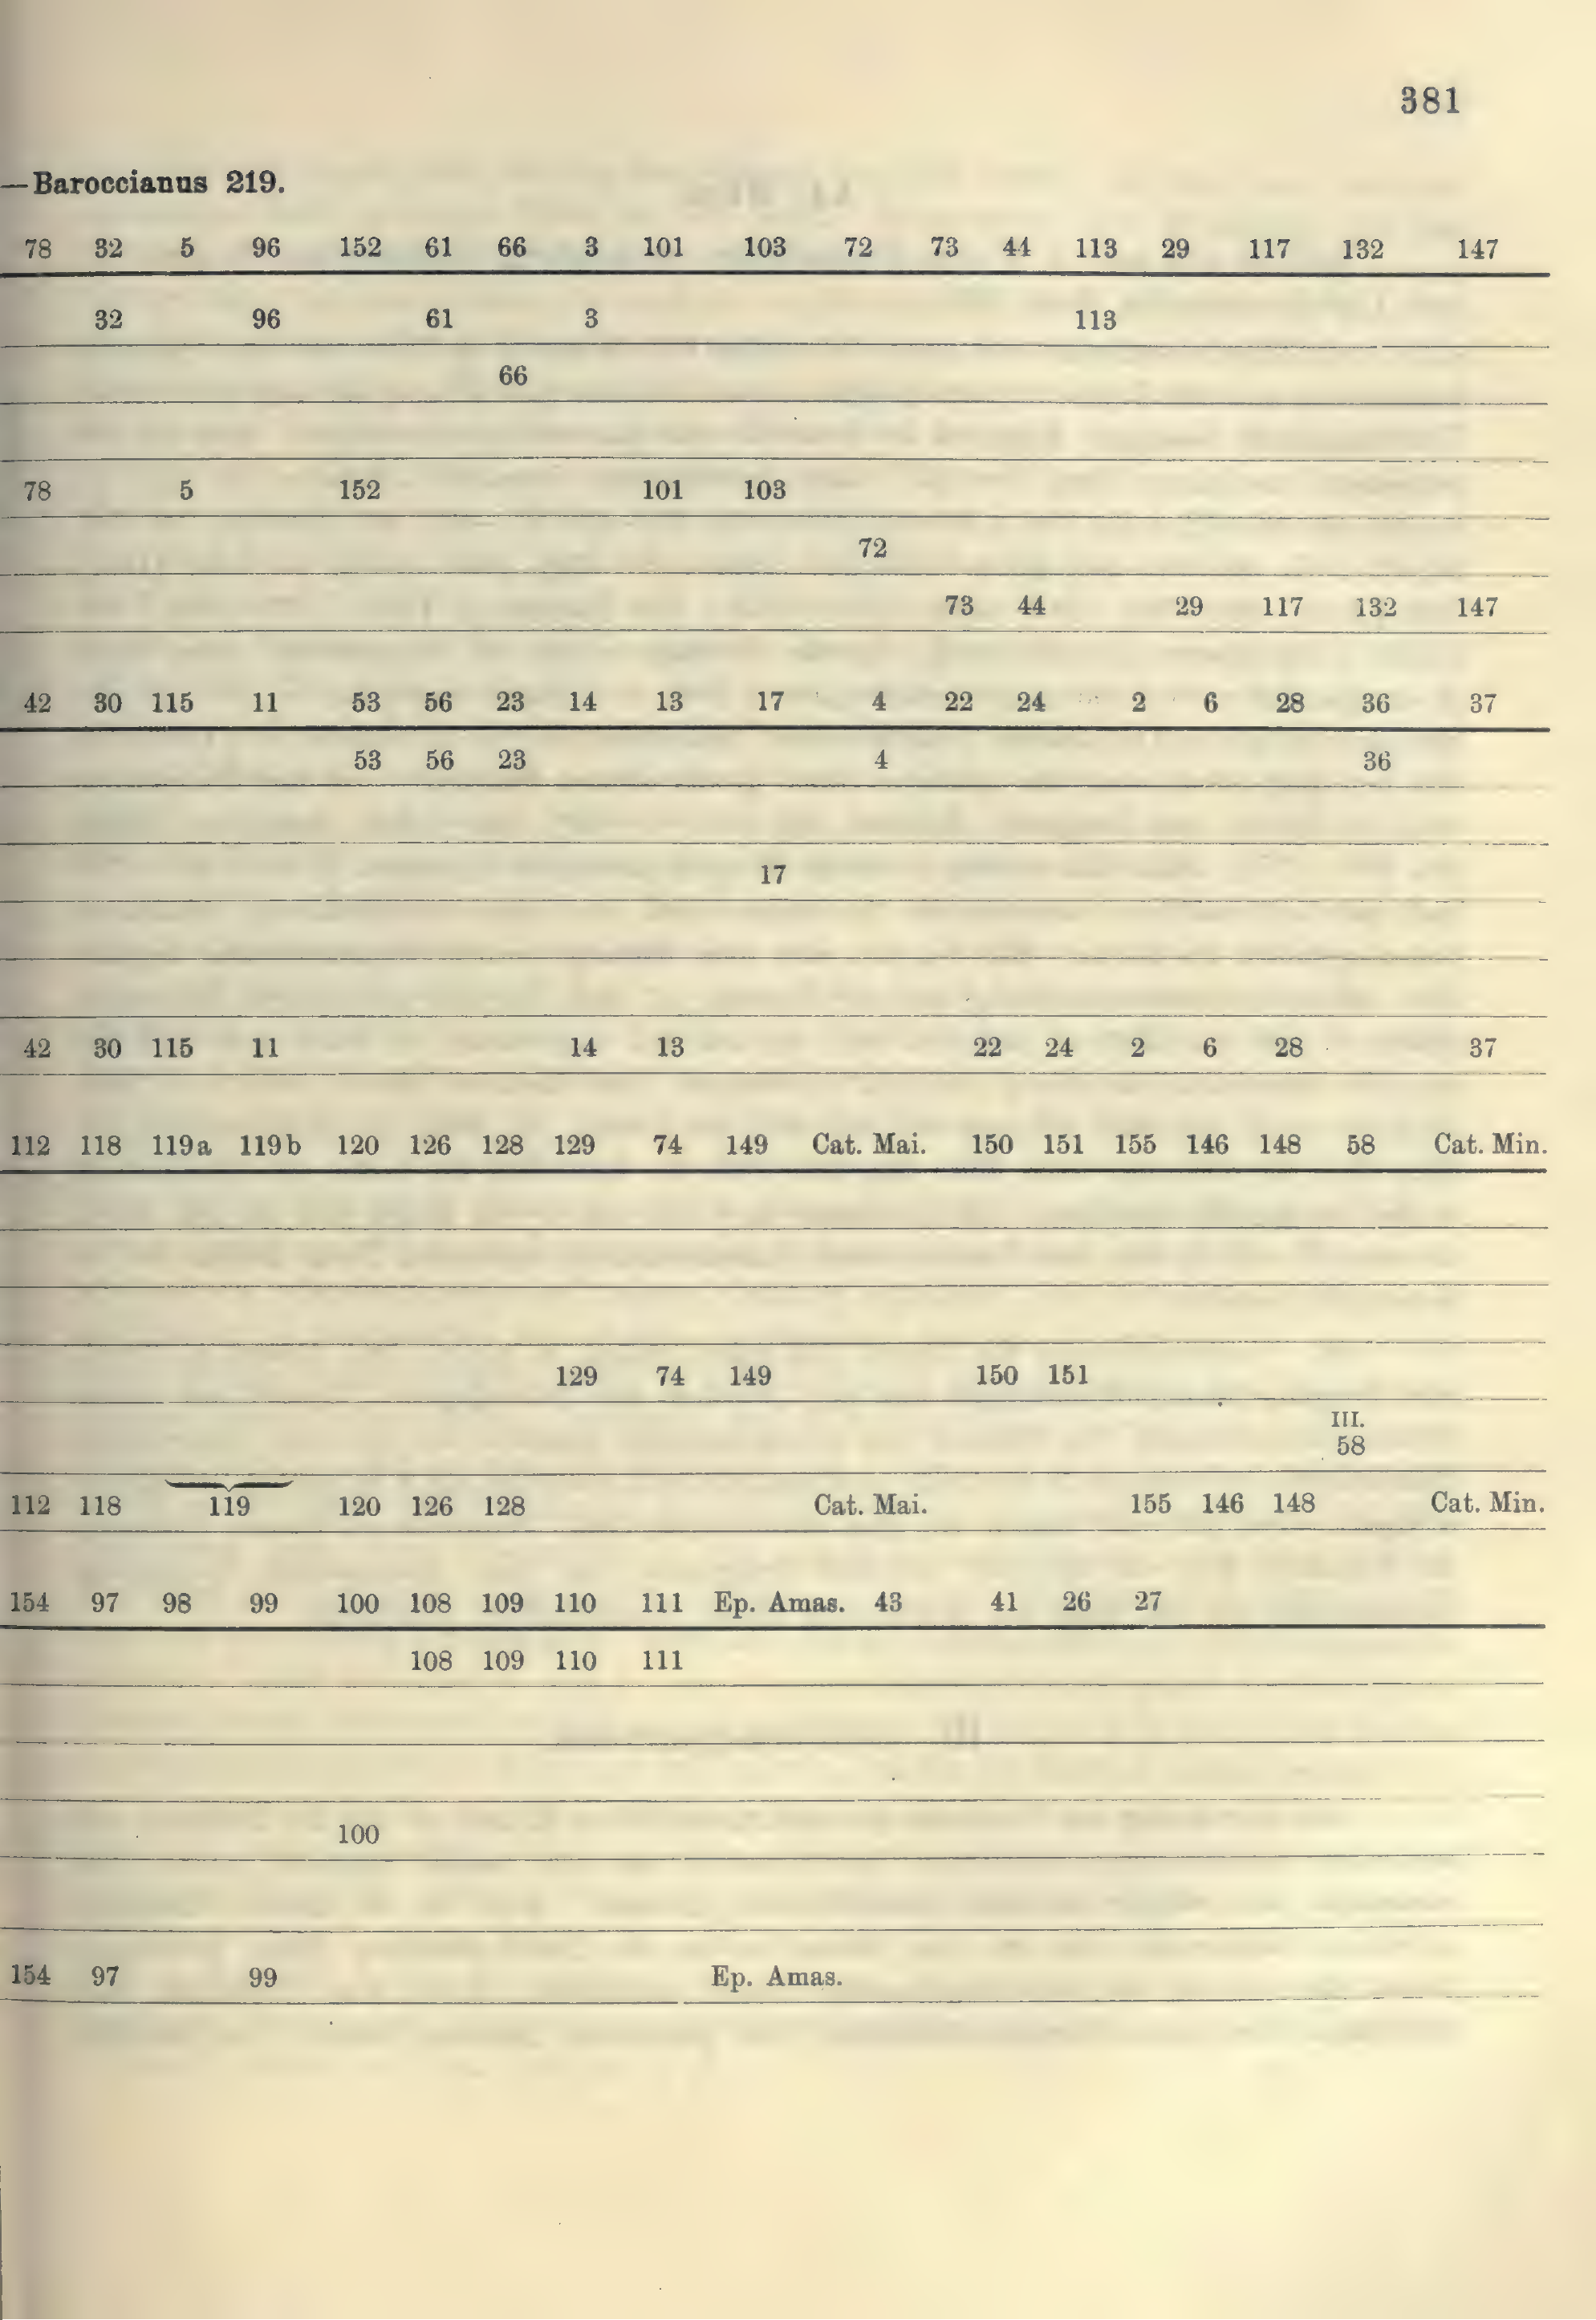 381
—Baroccianus 219.
78 32 5 96 152 61 66 3 101 103 72 73 44 113 29 117 132 147
32 96 61 3 113
66
78 5 152 101 103
72
73 44 29 117 132 147
42 30 115 11 53 56 23 14 13 17 4 22 24 2 6 28 36 37
53 56 23 4 36
17
42 30 115 11 14 13 22 24 2 6 28 37
112 118 119a 119b 120 126 128 129 74 149 Cat. Mai. 150 151 155 146 148 58 Cat. Min.
129 74 149 150 151
III.
58
112 118 119 120 126 128 Cat. Mai. 155 146 148 Cat. Min.
154 97 98 99 100 108 109 110 111 Ep. Amas. 43 41 26 27
108 109 110 111
100
154 97 99 Ep. Amas.